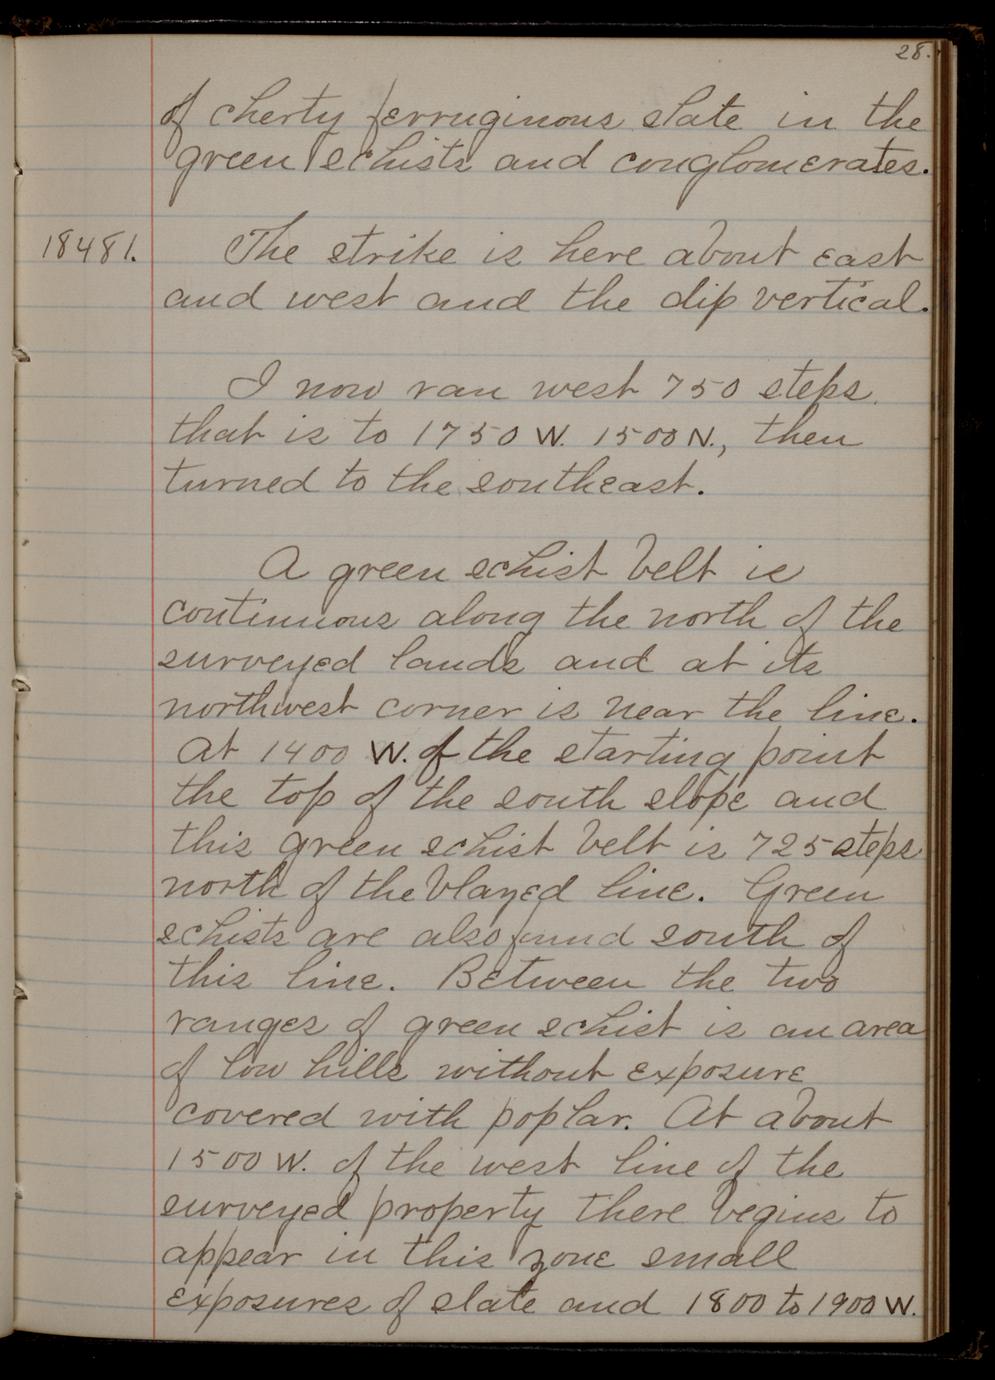 28.
of cherty ferruginous slate in the
green schists and conglomerates.
18481. The strike is here about east
and west and the dip vertical.
I now ran west 750 steps,
that is to 1750 W. 1500 N., then
turned to the southeast.
A green schist belt is
continuous along the north of the
surveyed lands and at its
northwest corner is near the line.
At 1400 W. of the starting point
the top of the south slope and
this green schist belt is 725 steps
north of the blazed line. Green
schists are also found south of
this line. Between the two
ranges of green schist is an area
of low hills without exposure
covered with poplar. At about
1500 W. of the west line of the
surveyed property there begins to
appear in this zone small
exposures of slate and 1800 to 1900 W.